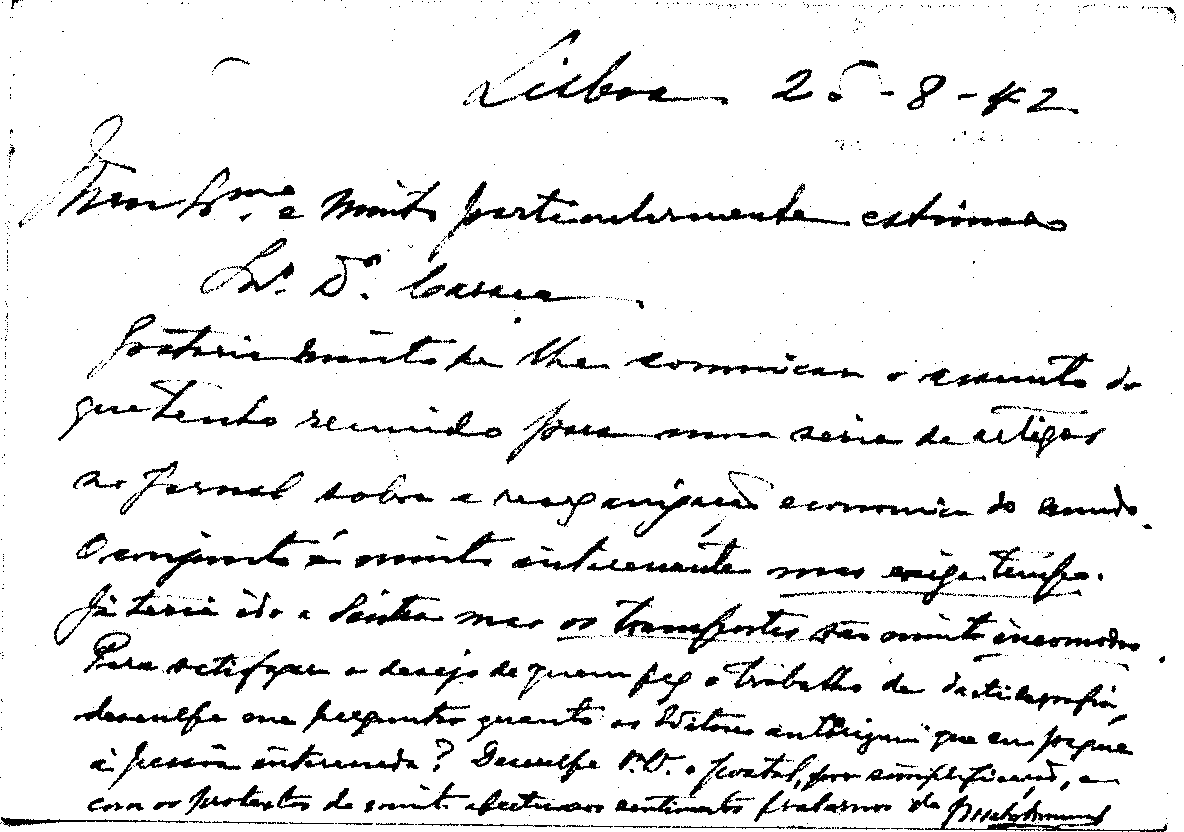 Lisboa 25-8-42
Meu Exmo. e muito particularmente estimado
Snr. Dr. Casaca
Gostaria muito de lhe comunicar o assunto do
que tenho reunido para uma serie de artigos
no Jornal sobre a reorganização economica do mundo.
O conjunto é muito interessante mas exige tempo.
Já teria ido a Sintra mas os transportes são muito incomodos.
Para satisfazer o desejo de quem fez o trabalho de dactilografia,
desculpe me pergunto quanto os Editores que eu pague
á pessoa interessada? Desculpe V.V. o postal, por simplificação, e
com os protestos de muito afectuosos sentimentos fraternos de